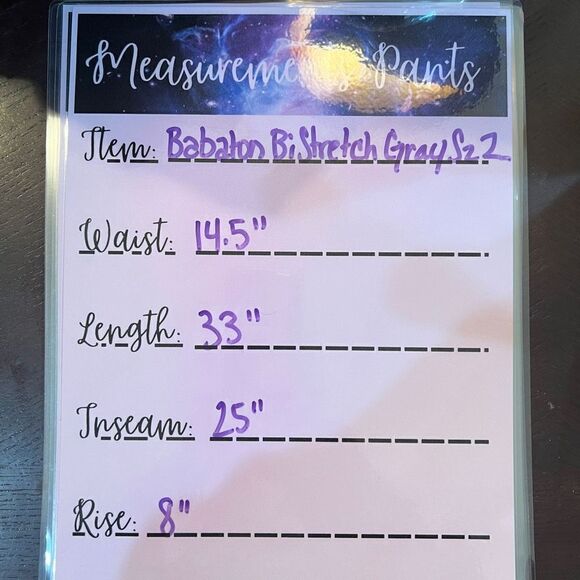 Measurements: Pants
Item: Babaton BiStretch Gray Sz 2
Waist: 14.5"
Length: 33"
Inseam: 25"
Rise: 8"